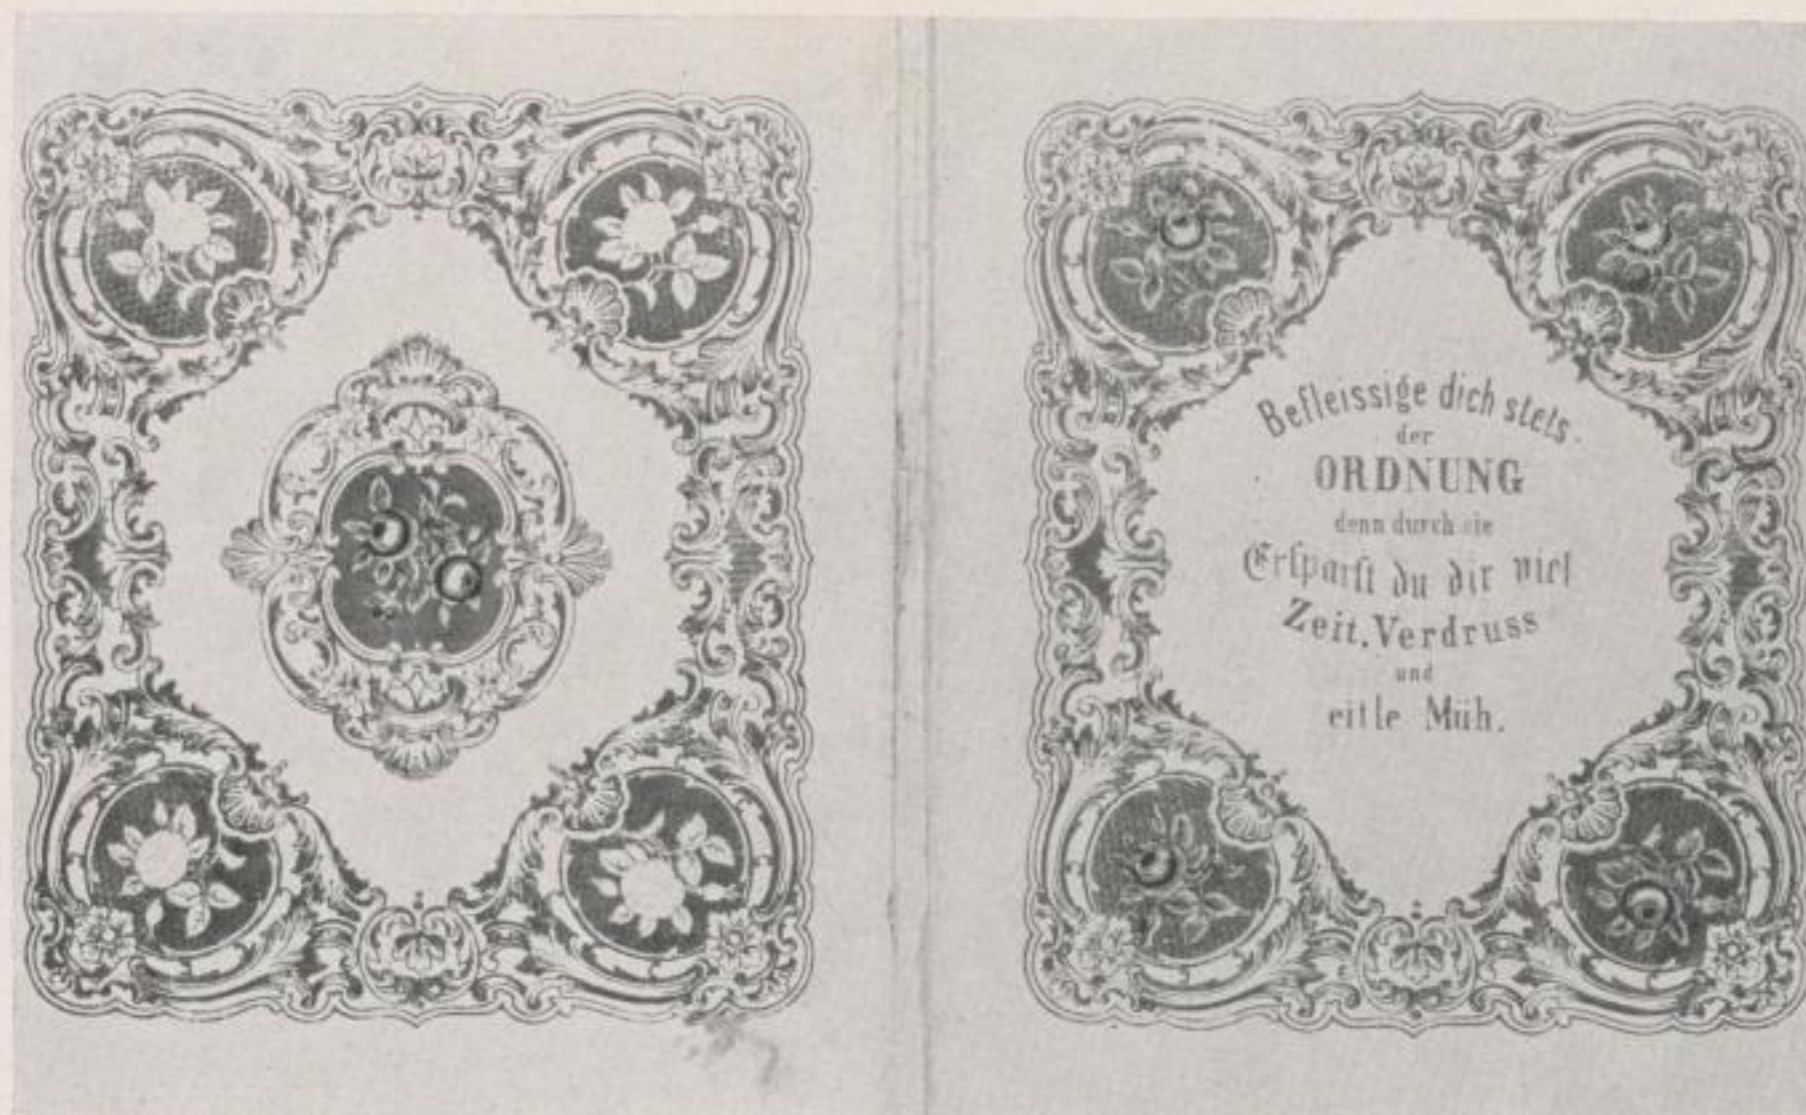 Befleissige dich stets
der
ORDNUNG
denn durch sie
Ersparst du dir viel
Zeit. Verdruss
und
eitle Müh.